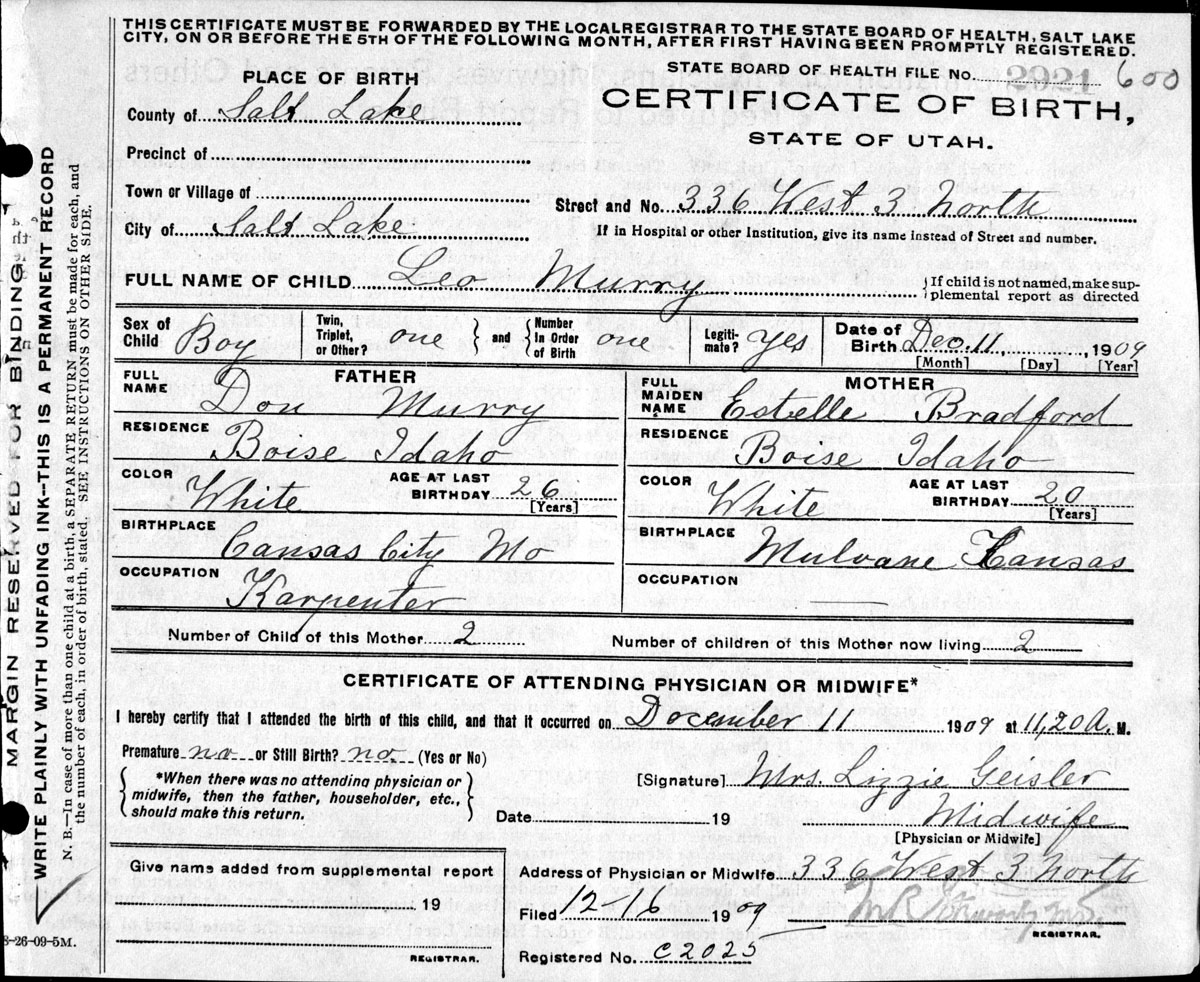 THIS CERTIFICATE MUST BE FORWARDED BY THE LOCAL REGISTRAR TO THE STATE BOARD OF HEALTH, SALT LAKE
CITY, ON OR BEFORE THE 5TH OF THE FOLLOWING MONTH, AFTER FIRST HAVING BEEN PROMPTLY REGISTERED.
PLACE OF BIRTH
STATE BOARD OF HEALTH FILE No. 2921 600
County of Salt Lake
CERTIFICATE OF BIRTH,
STATE OF UTAH.
Precinct of
Town or Village of
Street and No. 336 West 3 North
City of Salt Lake
If in Hospital or other Institution, give its name instead of Street and number.
FULL NAME OF CHILD Leo Murry
If child is not named, make sup-
plemental report as directed
Sex of Child Boy
Twin, Triplet, or Other? one and Number In Order of Birth one
Legiti-mate? Yes
Date of Birth Dec. 11, 1909
[Month] [Day] [Year]
FATHER
FULL NAME Don Murry
RESIDENCE Boise Idaho
COLOR White AGE AT LAST BIRTHDAY 26 [Years]
BIRTHPLACE Cansas City Mo
OCCUPATION Karpenter
MOTHER
FULL MAIDEN NAME Estelle Bradford
RESIDENCE Boise Idaho
COLOR White AGE AT LAST BIRTHDAY 20 [Years]
BIRTHPLACE Mulvane Kansas
OCCUPATION
Number of Child of this Mother 2 Number of children of this Mother now living 2
CERTIFICATE OF ATTENDING PHYSICIAN OR MIDWIFE*
I hereby certify that I attended the birth of this child, and that it occurred on December 11 1909 at 11,20 A. M.
Premature no or Still Birth? no. (Yes or No)
*When there was no attending physician or
midwife, then the father, householder, etc.,
should make this return.
[Signature] Mrs. Lizzie Geisler
Date 19 Midwife
[Physician or Midwife]
Give name added from supplemental report
19
REGISTRAR.
Address of Physician or Midwife 336 West 3 North
Filed 12-16 1909
REGISTRAR.
Registered No. C2025
MARGIN RESERVED FOR BINDING
WRITE PLAINLY WITH UNFADING INK--THIS IS A PERMANENT RECORD
N. B.—In case of more than one child at a birth, a SEPARATE RETURN must be made for each, and
the number of each, in order of birth, stated. SEE INSTRUCTIONS ON OTHER SIDE.
8-26-09-5M.